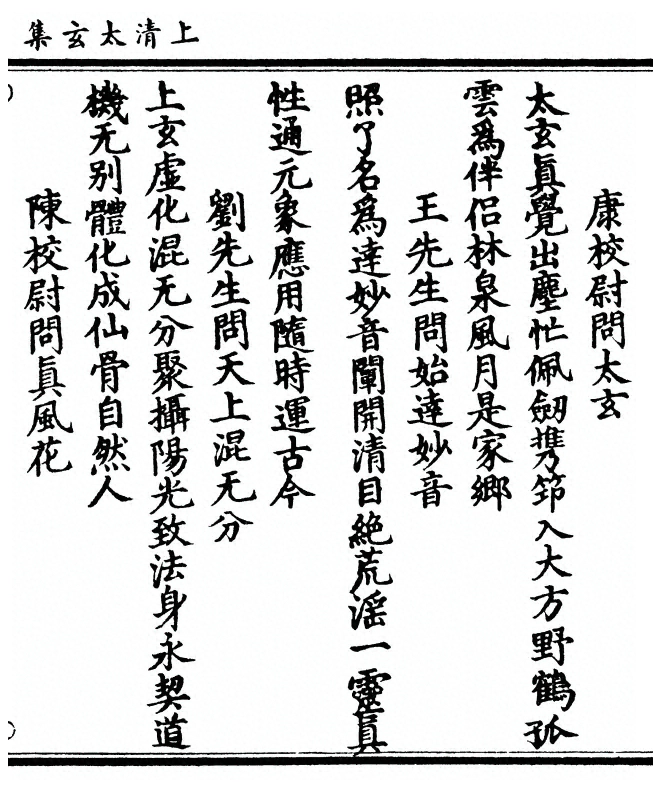 上清太玄集
康校尉問太玄
太玄眞覺出塵忙佩劒携筇入大方野鶴孤
雲爲伴侣林泉風月是家鄉
王先生問始達妙音
照了名爲達妙音闡開清目絶荒滛一靈眞
性通元象應用隨時運古今
劉先生問天上混无分
上玄虚化混无分聚攝陽光致法身永契道
機无别體化成仙骨自然人
陳校尉問眞風花